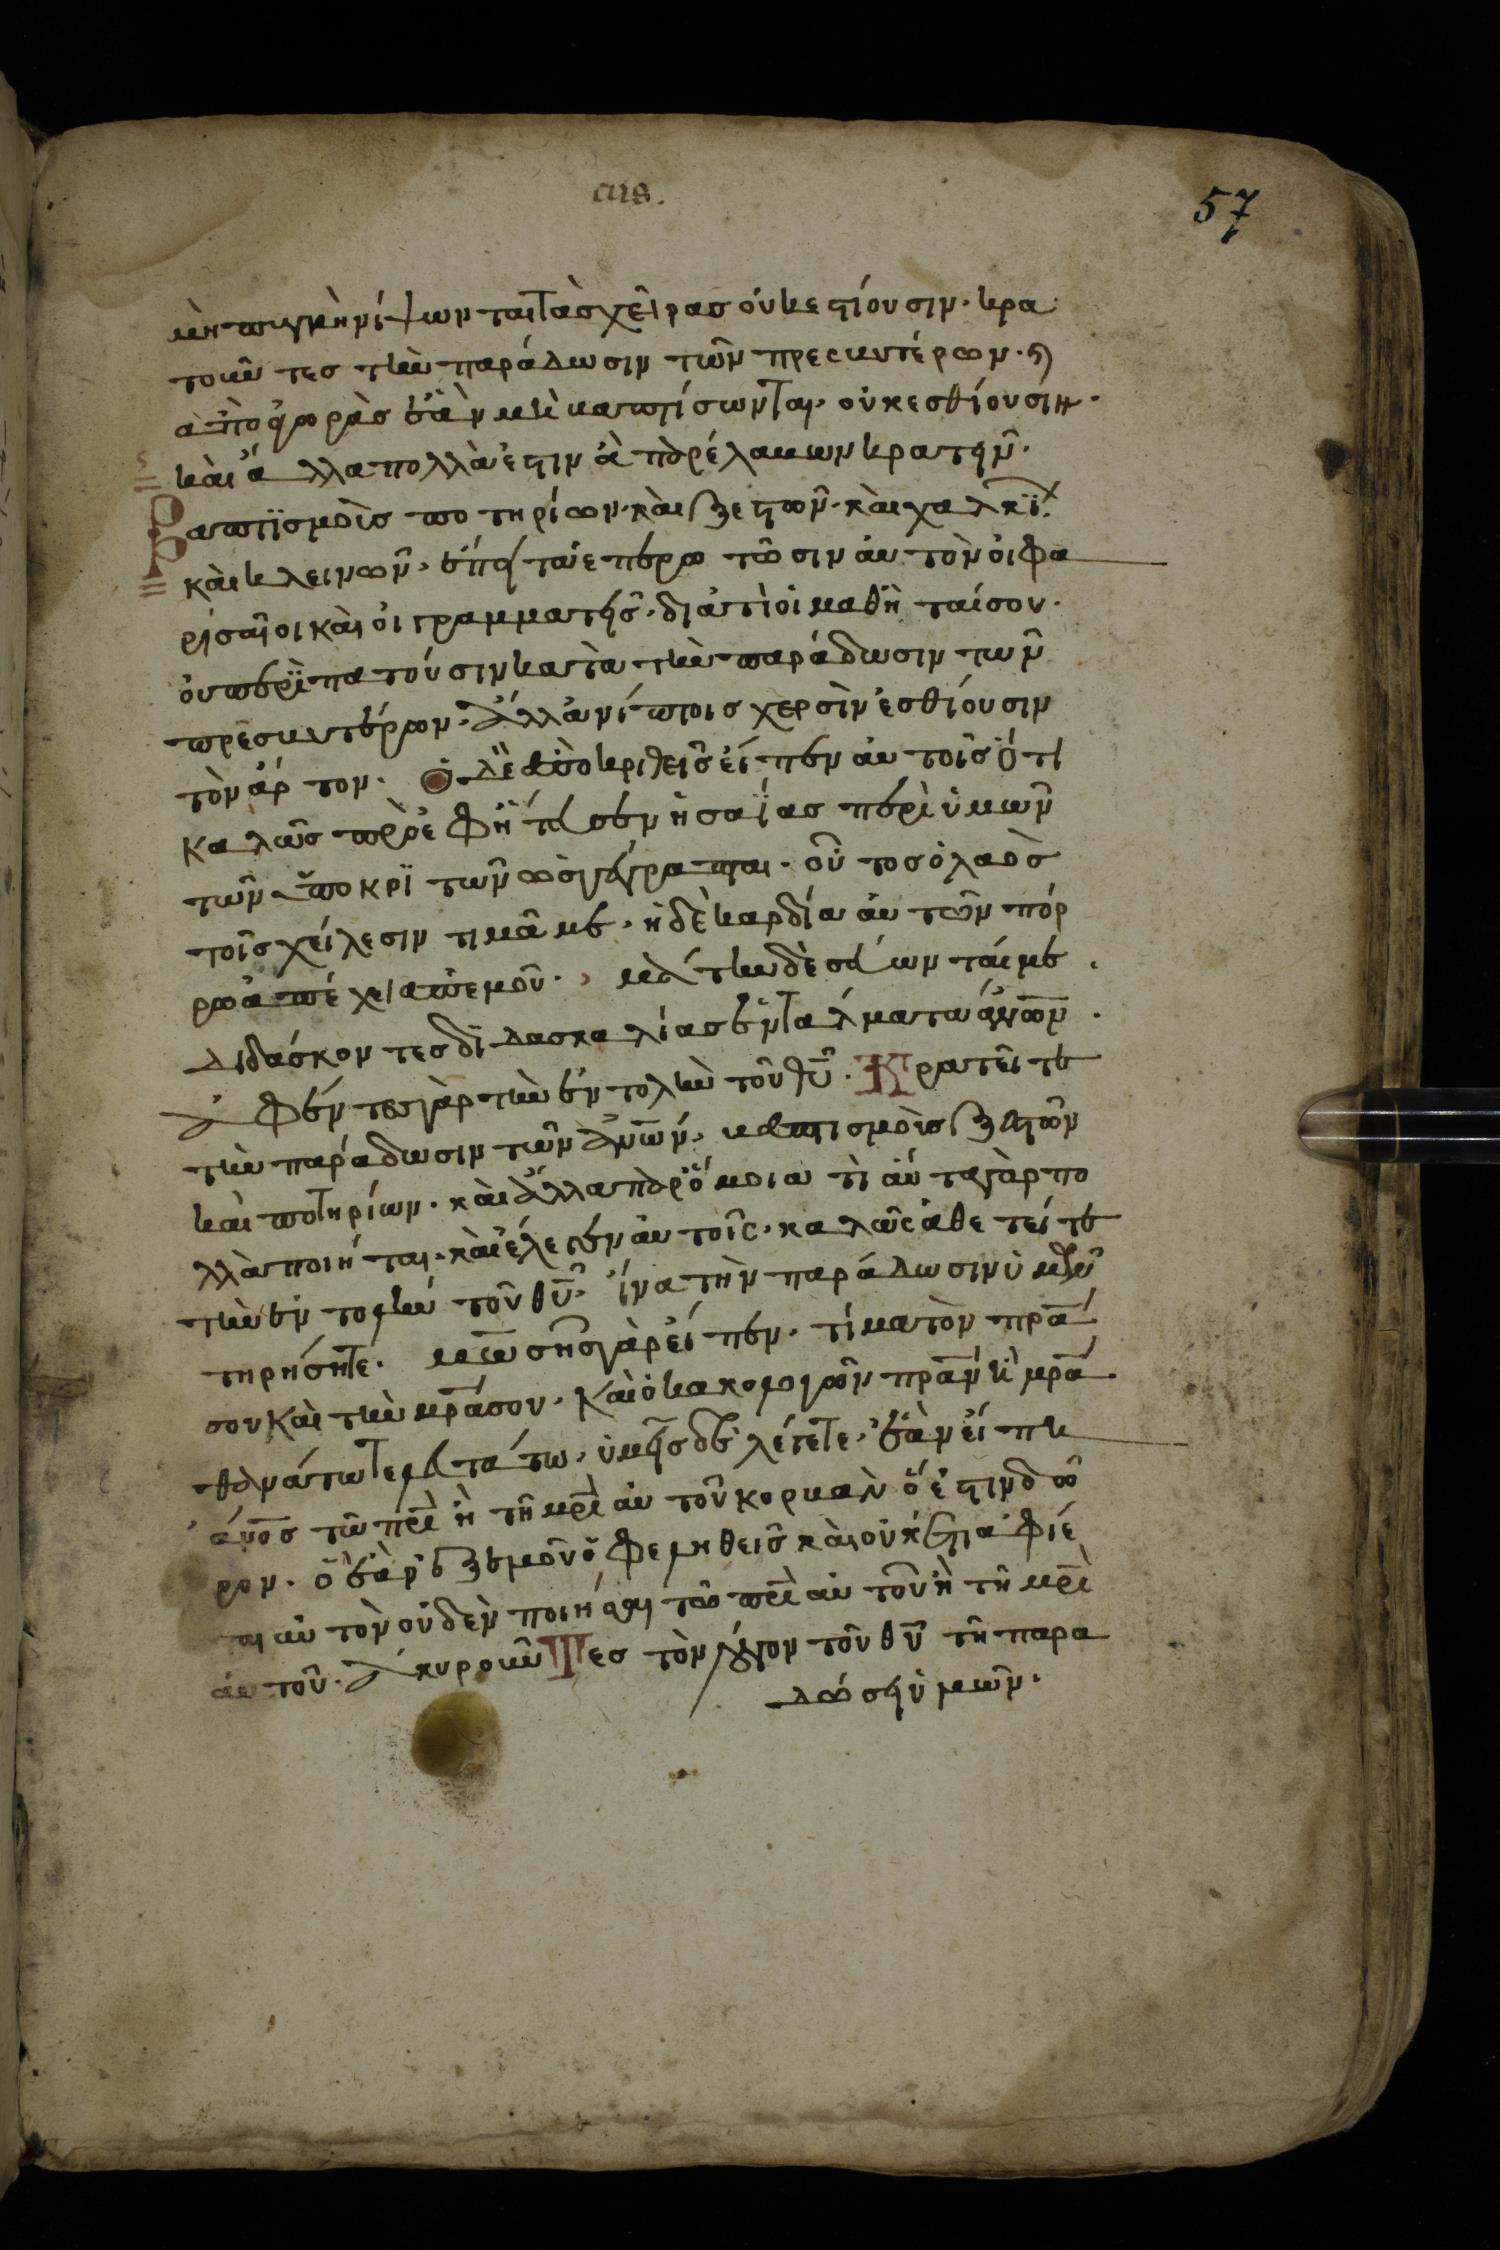 αις.
57
μὴ πυγμὴ νίψωνται τὰς χεῖρας οὐκ εστίουσιν. κρα
τοῦντες τὴν παράδωσιν τῶν πρεσβυτέρων. κ
ἀπὸ φορὰς ἐὰν μὴ βαπτίσωνται. οὐκ εσθίουσιν.
καὶ ἄλλα πολλὰ ἐστιν ἃ παρέλαβων κρατην.
Βαπτϊσμοὶς ποτηρίων. καὶ ξεστῶν. καὶ χαλκϊ.
καὶ κλεινῶν. ἔπειτα ἐπερωτῶσιν αὐτὸν οἱ φα
ρισαῖοι καὶ οἱ γραμματῆς. διατὶ οἱ μαθηταί σου.
οὐ περϊπατούσιν κατὰ τὴν παράδωσιν τῶν
πρεσβυτέρων. Ἀλλὰ νίπτοις χερσὶν ἐσθίουσιν
τὸν ἄρτον. Ὁ δὲ ἀποκριθεὶς εἶπεν αὐτοῖς ὅτι
καλῶς προεφήτευσεν ἡσαΐας περὶ ὑμῶν
τῶν ὑποκρϊτῶν ὡς γέγραπται. οὗτος ὁ λαὸς
τοῖς χείλεσιν τιμᾶ με. ἡ δὲ καρδία αὐτῶν πόρ
ρω ἀπέχει ἀπ' ἐμοῦ. μάτην δὲ σέβωνταί με.
διδάσκοντες δϊδασκαλίας ἐντάλματα ἀνων.
Ἀφέντες γὰρ τὴν ἐντολὴν τοῦ θυ. Κρατεῖτε
τὴν παράδωσιν τῶν ἀνων. βαπτισμοὶς ξεστῶν
καὶ ποτηρίων. καὶ ἄλλα παρόμοια τϊαύτα γὰρ πο
λλὰ ποιήται. καὶ ἔλεγεν αὐτοῖς. καλῶς ἀθετείτε
τὴν ἐντολὴν τοῦ θυ. ἵνα τὴν παράδωσιν ὑμῶν
τηρήσητε. μωσῆς γὰρ εἶπεν. τίμα τὸν πρα
σου καὶ τὴν μρα σου. Καὶ ὁ κακολογῶν πρα ἢ μρα
θανάτω τελευτάτω. ὑμεῖς δὲ λέγετε. ἐὰν εἴπη
ἀνος τῶ πρι ἢ τῆ μρι αὐτοῦ κορβαν ὅ ἐστιν δῶ
ρον. ὃ ἐὰν ἐξ ἐμοῦ ὀφεληθεὶς καὶ οὐκέτι ἀφίε
ται αὐτὸν οὐδὲν ποιῆσαι τῶ πρι αὐτοῦ ἢ τῆ μρι
αὐτοῦ. Ἀκυροῦντες τὸν λόγον τοῦ θυ τῆ παρα
δώσει ὑμῶν.